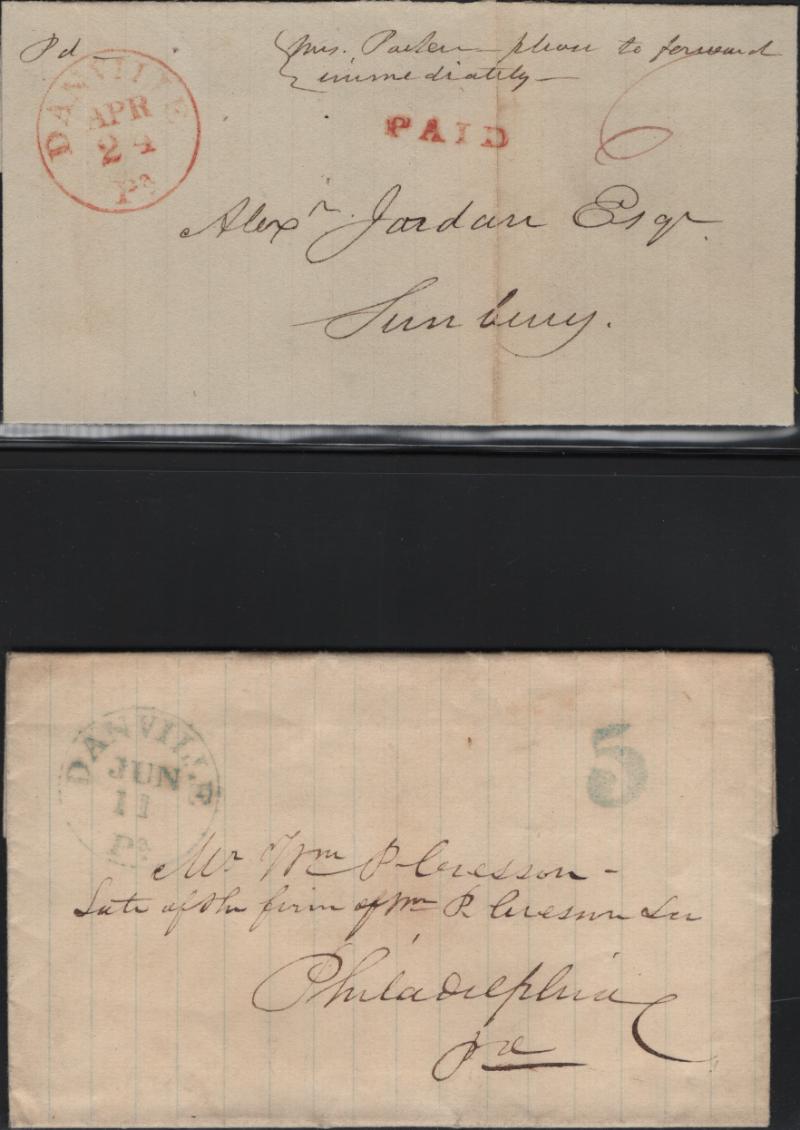 Pd
Mrs. Parker please to forward
immediately
DANVILLE
APR
24
Pa
PAID
6
Alexr. Jordan Esqr.
Sunbury.
DANVILLE
JUN
11
Pa
5
Mr Wm P Cresson
Late of the firm of Wm P. Cresson
Philadelphia
Pa